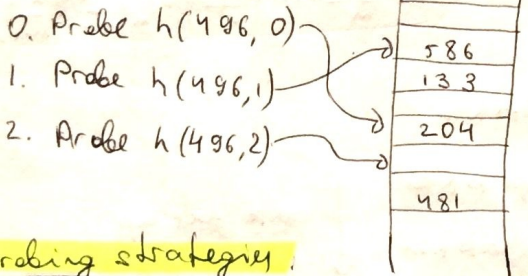 0. Probe h(496, 0)
1. Probe h(496, 1)
2. Probe h(496, 2)
586
133
204
481
robing strategies.